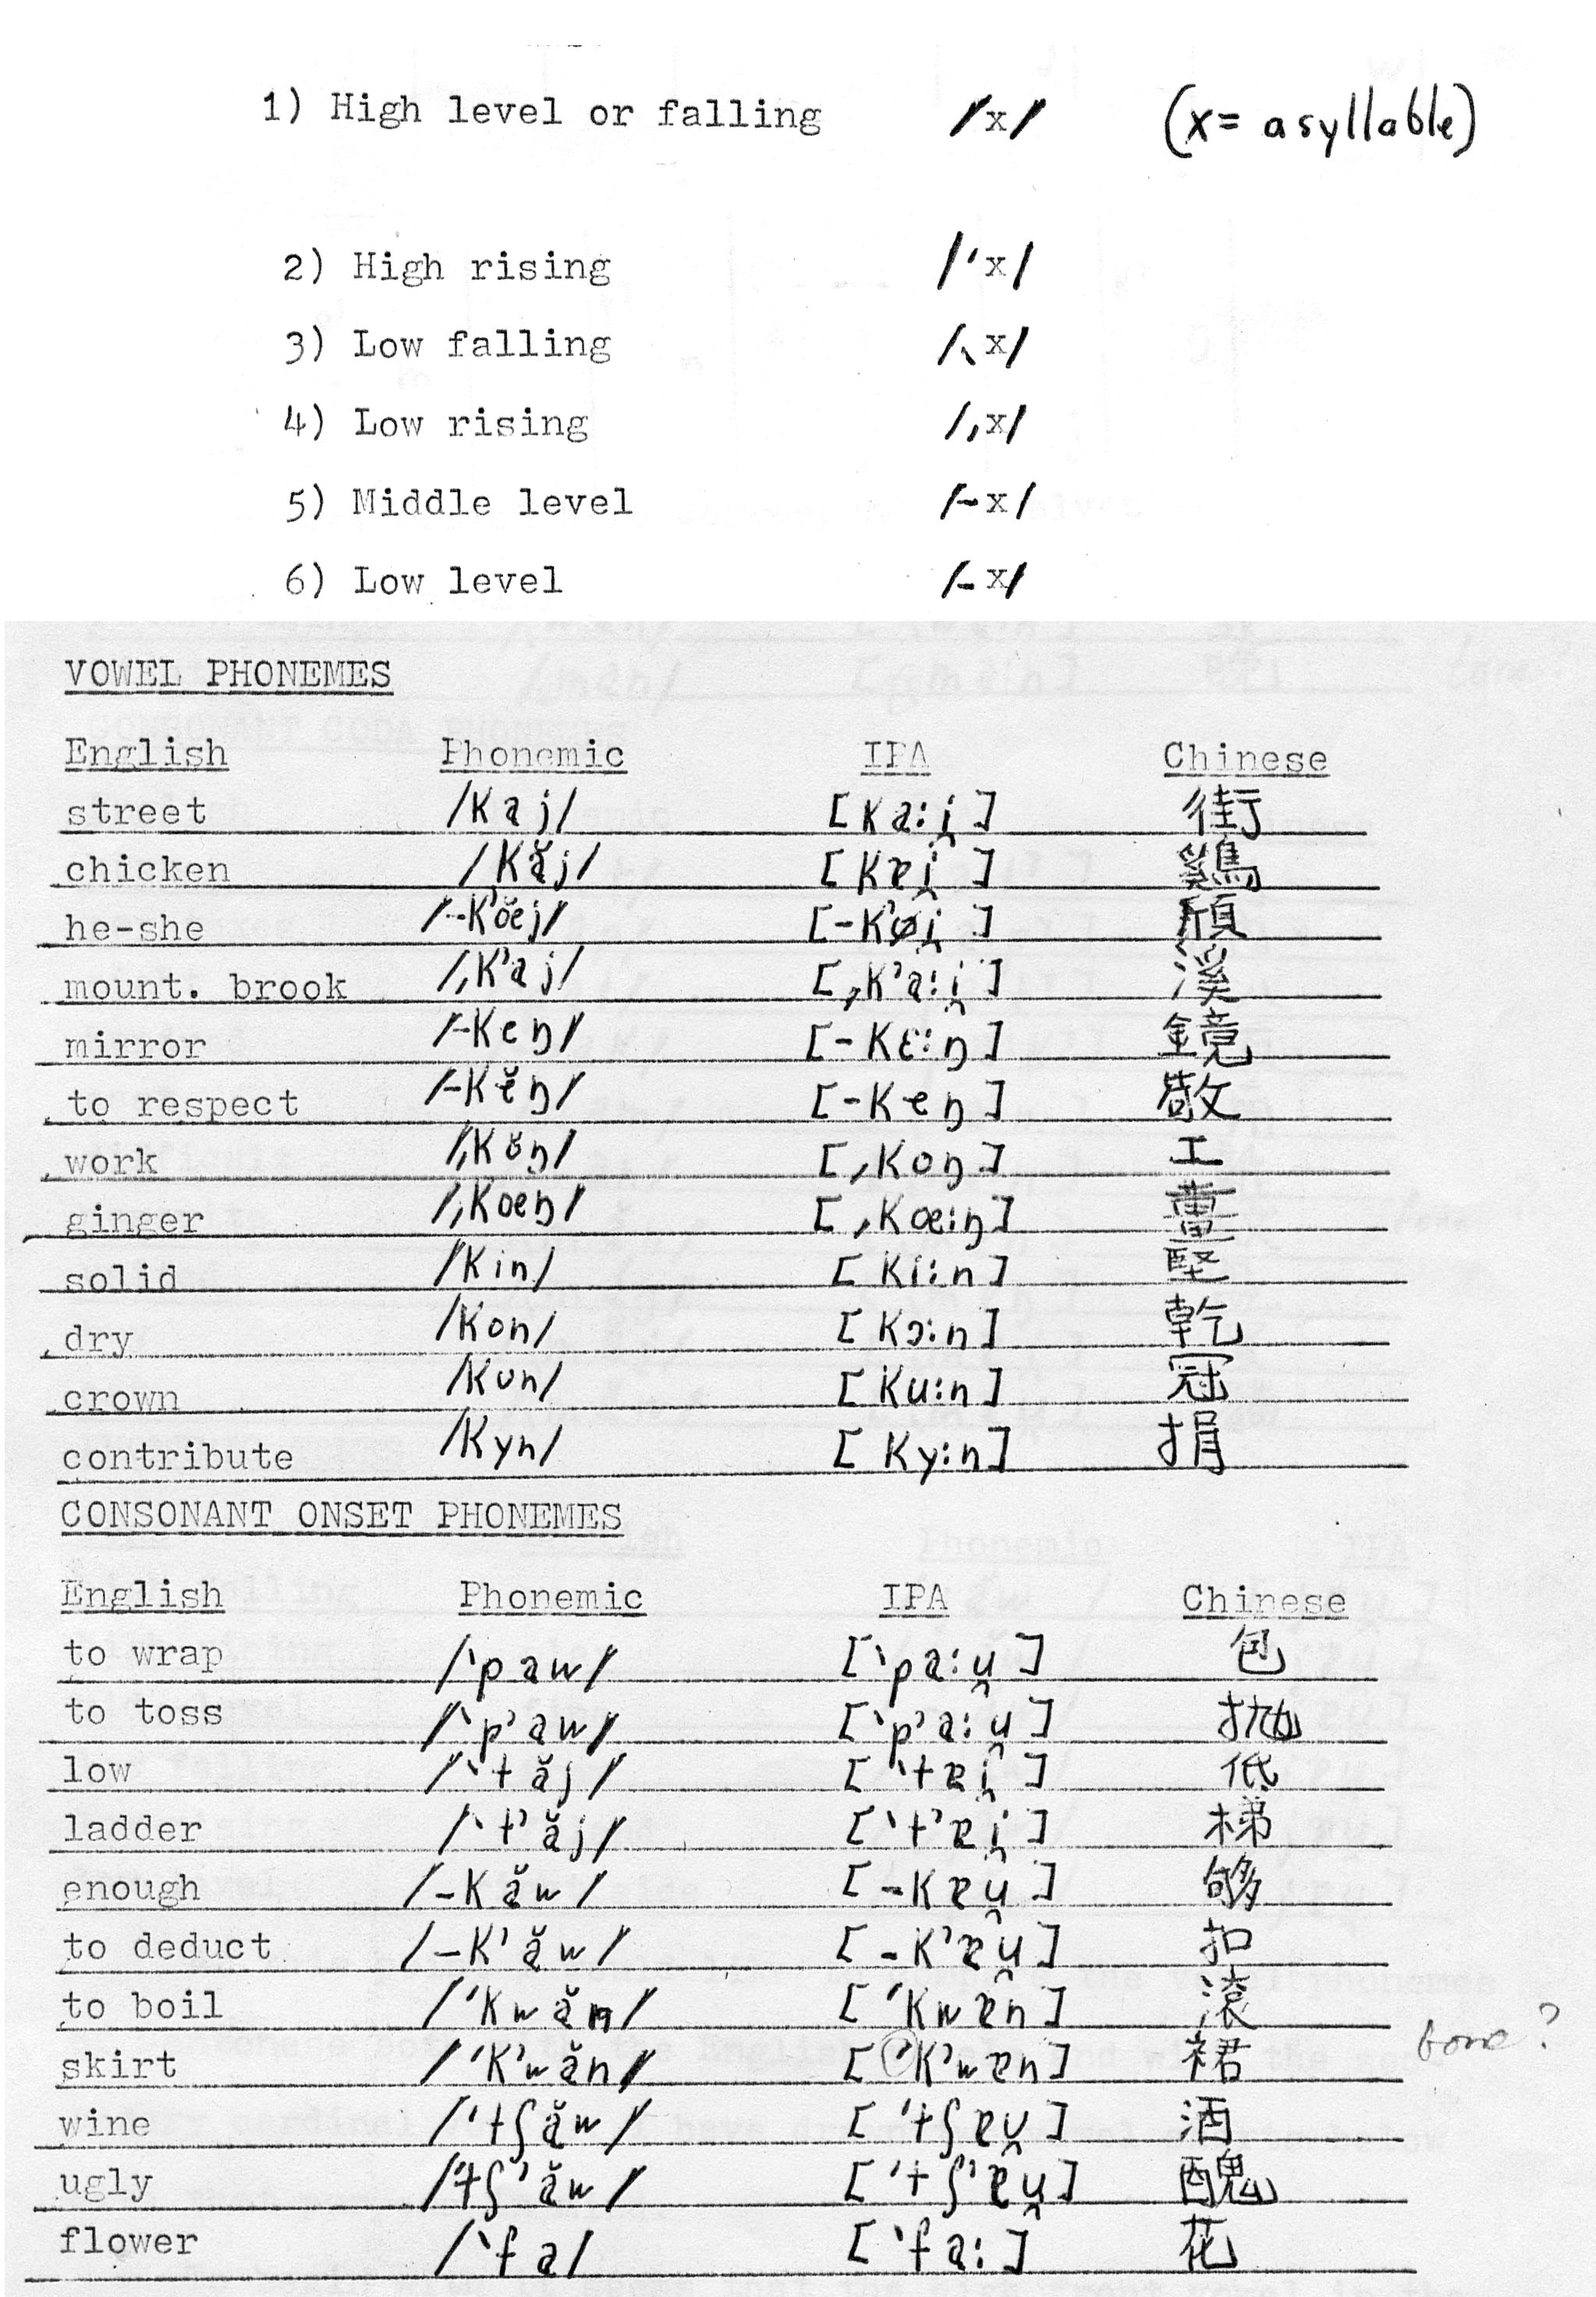 1) High level or falling /x/ (x= a syllable)
2) High rising /ˈx/
3) Low falling /ˎx/
4) Low rising /ˏx/
5) Middle level /-x/
6) Low level /-x/
VOWEL PHONEMES
English Phonemic IPA Chinese
street /Kaj/ [Ka:i̯] 街
chicken /Kăj/ [Kɐi̯] 鷄
he-she /-K'œ̆j/ [-K'øi̯]
mount. brook /,K'aj/ [,K'a:i̯] 溪
mirror /-Keŋ/ [-Kɛ:ŋ] 鏡
to respect /-Kĕŋ/ [-Keŋ] 敬
work /,Kŏŋ/ [,Koŋ] 工
ginger /,Kœŋ/ [,Kœ:ŋ]
solid /Kin/ [Ki:n] 堅
dry /Kon/ [Kɔ:n] 乾
crown /Kun/ [Ku:n] 冠
contribute /Kyn/ [Ky:n] 捐
CONSONANT ONSET PHONEMES
English Phonemic IPA Chinese
to wrap /ˋpaw/ [ˋpa:u̯] 包
to toss /ˋp'aw/ [ˋp'a:u̯] 抛
low /ˋtăj/ [ˋtɐi̯] 低
ladder /ˋt'ăj/ [ˋt'ɐi̯] 梯
enough /-Kăw/ [-Kɐu̯] 够
to deduct /-K'ăw/ [-K'ɐu̯] 扣
to boil /ˈKwăn/ [ˈKwɐn] 滾
skirt /ˈK'wăn/ [ˈK'wɐn] 裙 tone?
wine /ˈtʃăw/ [ˈtʃɐu̯] 酒
ugly /ˈtʃ'ăw/ [ˈtʃ'ɐu̯] 醜
flower /ˋfa/ [ˋfa:] 花